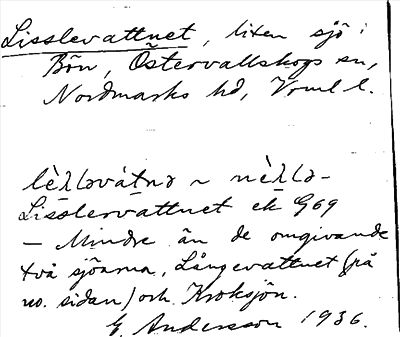 Lisslevattnet, liten sjö i
Bön, Östervallskogs sn,
Nordmarks hd, Vrml l.
lèλλəvátnə ~ nèλλə-
Lisslervattnet ek G69
– Mindre än de omgivande
två sjöarna, Långevattnet (på
no. sidan) och Kroksjön.
G. Andersson 1936.